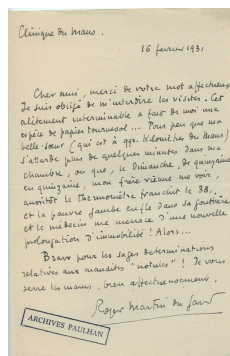 Clinique du Mans.
16 février 1931
Cher ami, merci de votre mot affectueux.
Je suis obligé de m'interdire les visites. Cet
alitement interminable a fait de moi une
espèce de papier tournesol... Pour peu que ma
belle-sœur (qui est à qqs. kilomètres du Mans)
s'attarde plus de quelques minutes dans ma
chambre, ou que, le Dimanche, de quinzaine
en quinzaine, mon frère vienne me voir,
aussitôt le thermomètre franchit le 38,
et la pauvre jambe enfle dans sa gouttière
et le médecin me menace d'une nouvelle
prolongation d'immobilité ! Alors...
Bravo pour les sages déterminations
relatives aux maudites "notules" ! Je vous
serre les mains, bien affectueusement.
Roger Martin du Gard
ARCHIVES PAULHAN